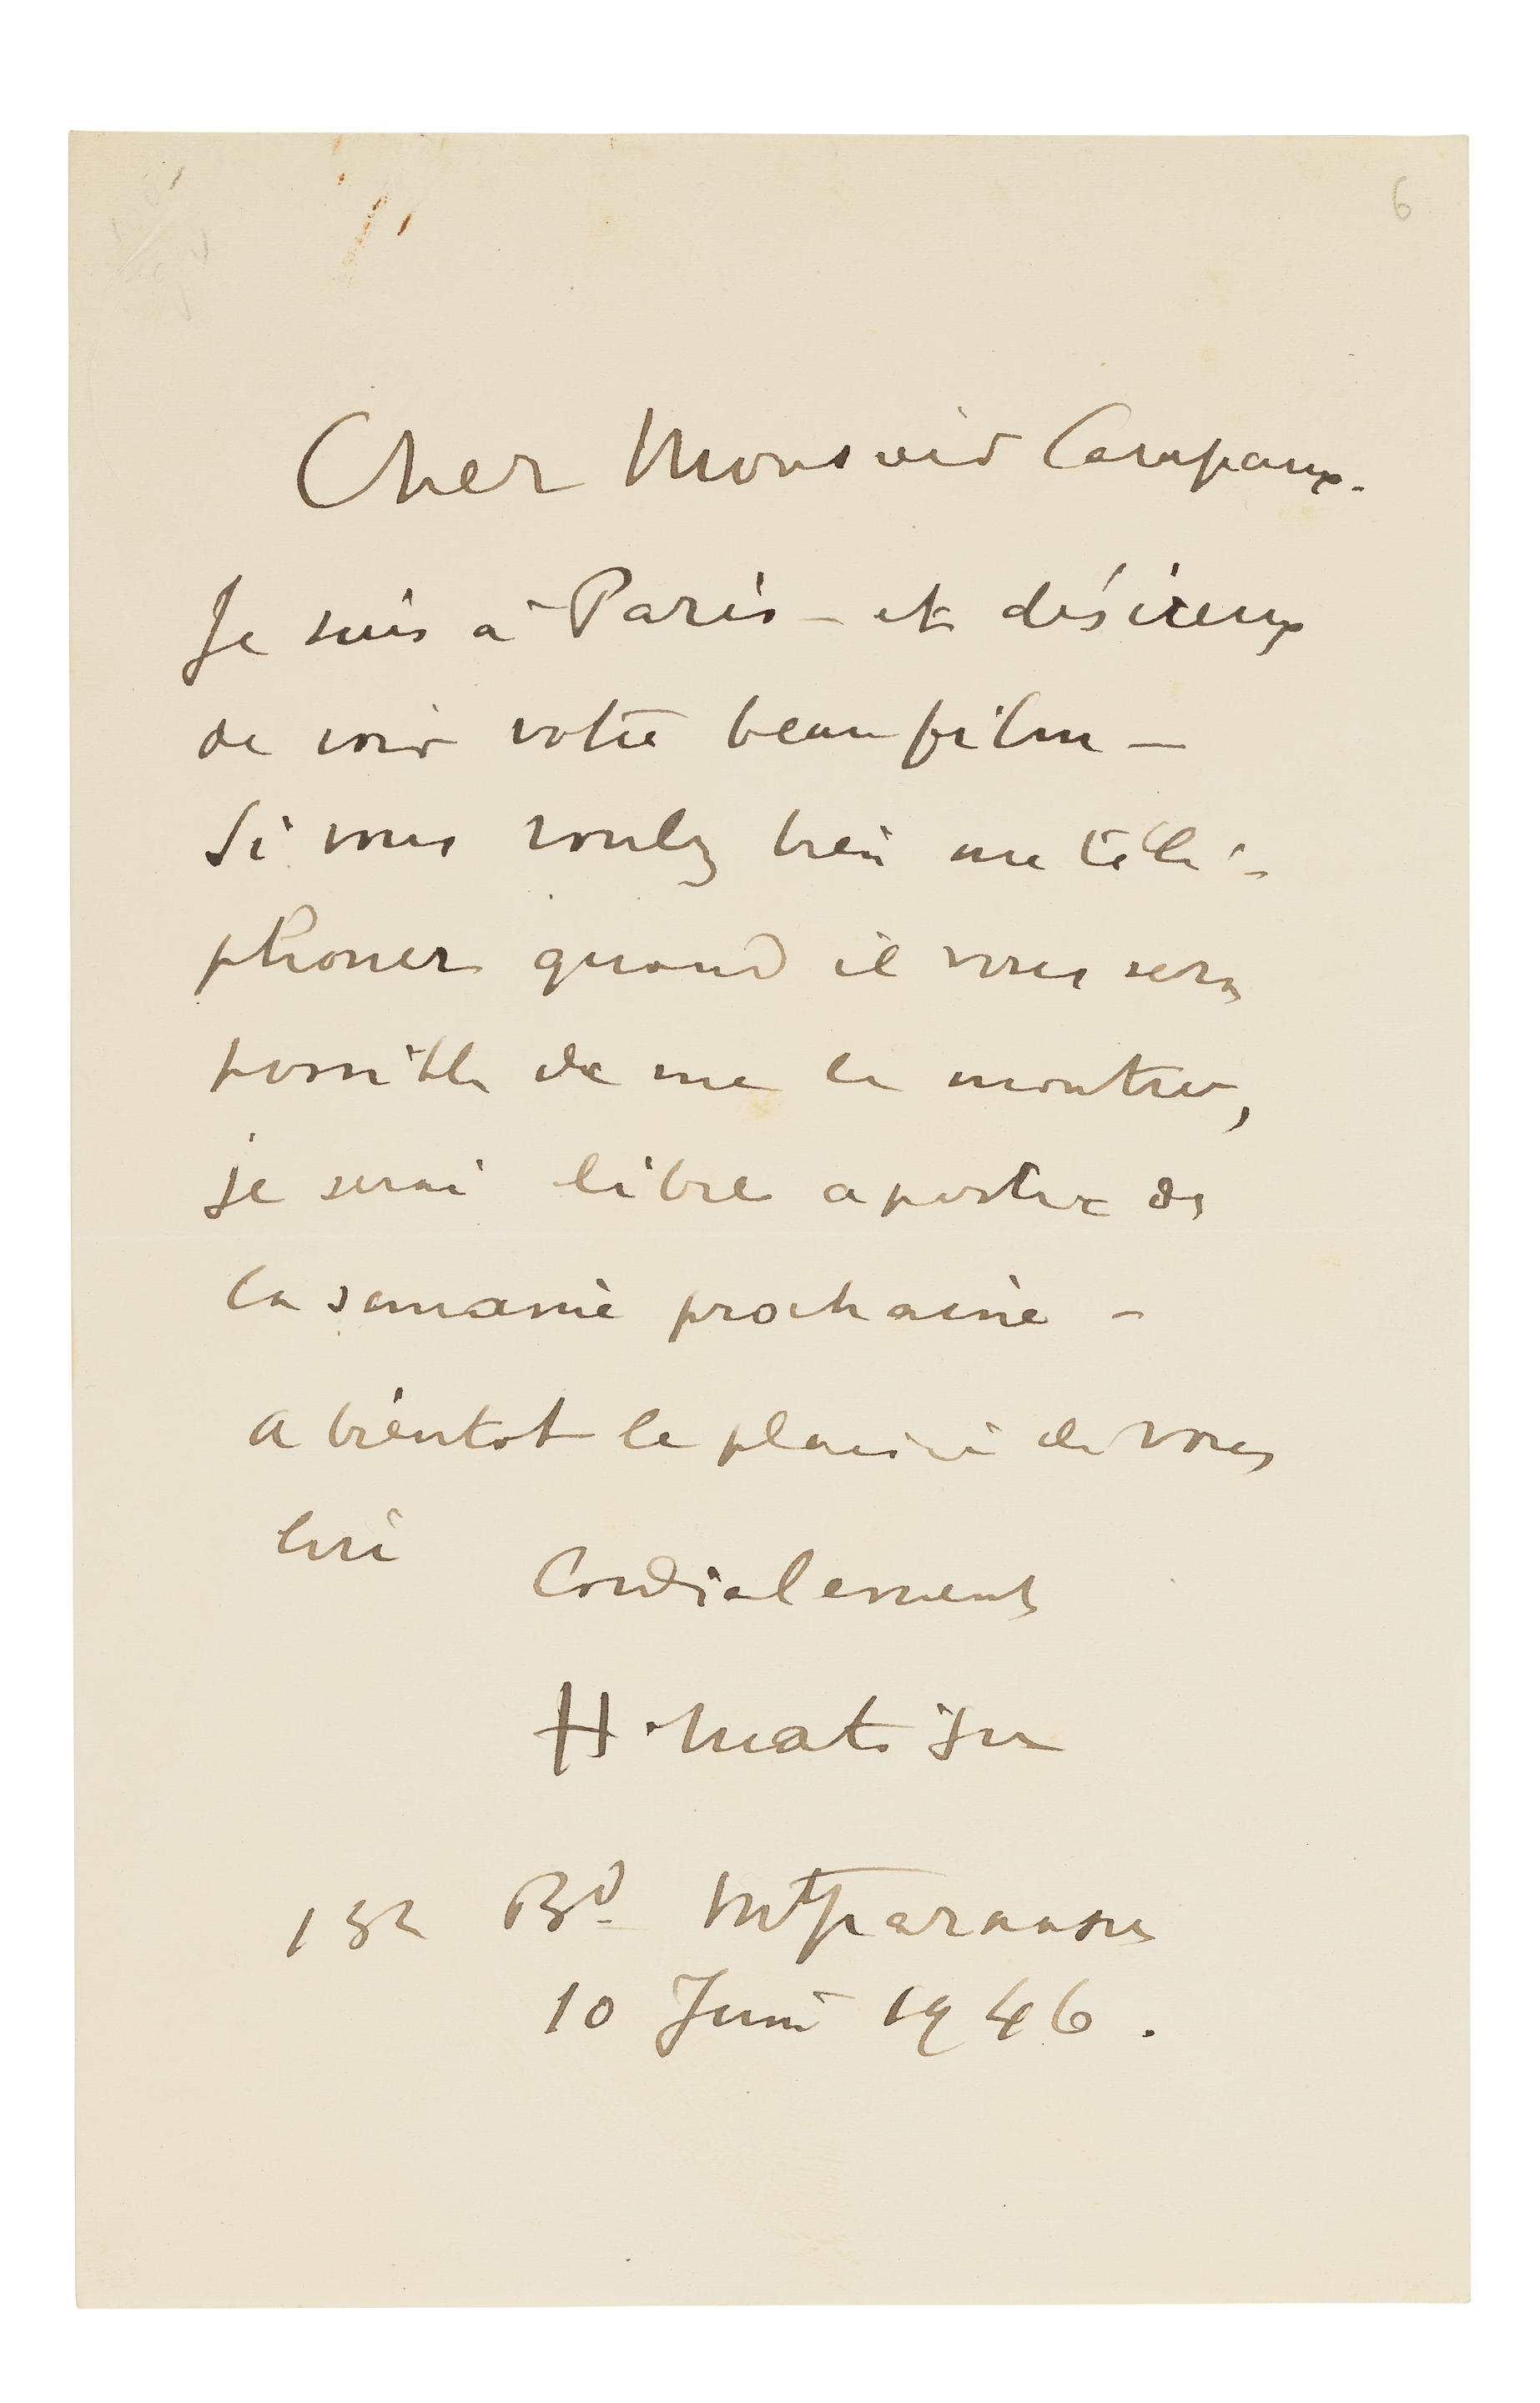 6
Cher Monsieur Campaux.
Je suis à Paris – et désireux
de voir votre beau film –
Si vous voulez bien me télé-
phoner quand il vous sera
possible de me le montrer,
je serai libre a partir de
la semaine prochaine –
A bientot le plaisir de vous
lire
Cordialement
H. Matisse
132 Bd Mtparnasse
10 Juin 1946.